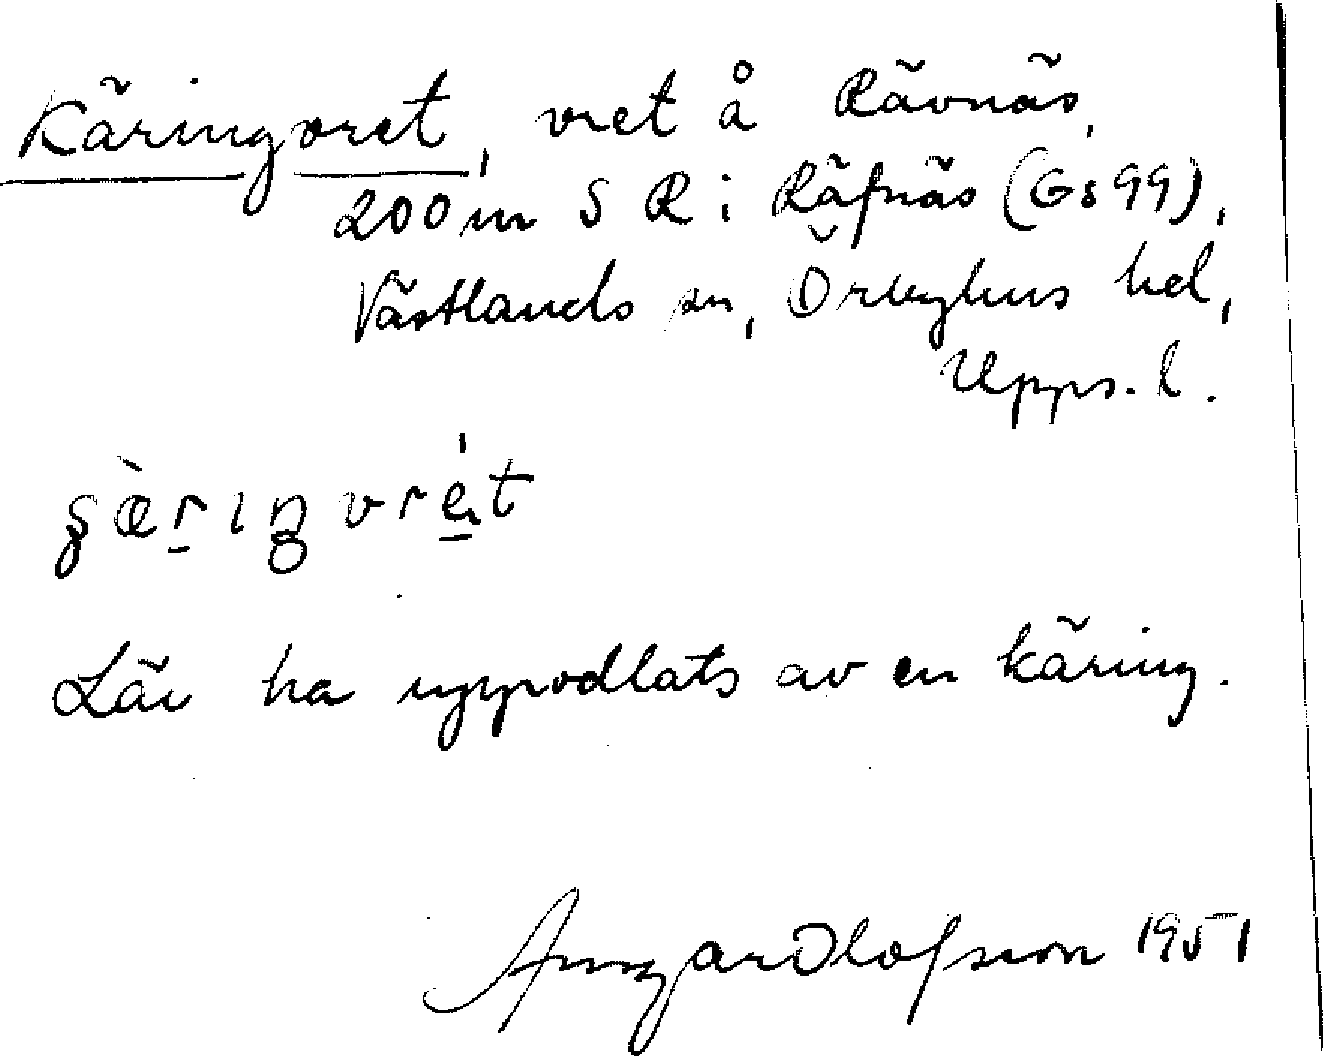 Käringvret, vret å Rävnäs,
200 m S R i Räfnäs (Gs 99),
Västlands sn, Örbyhus hd,
Upps. l.
Lär ha uppodlats av en käring.
Olofsson 1951